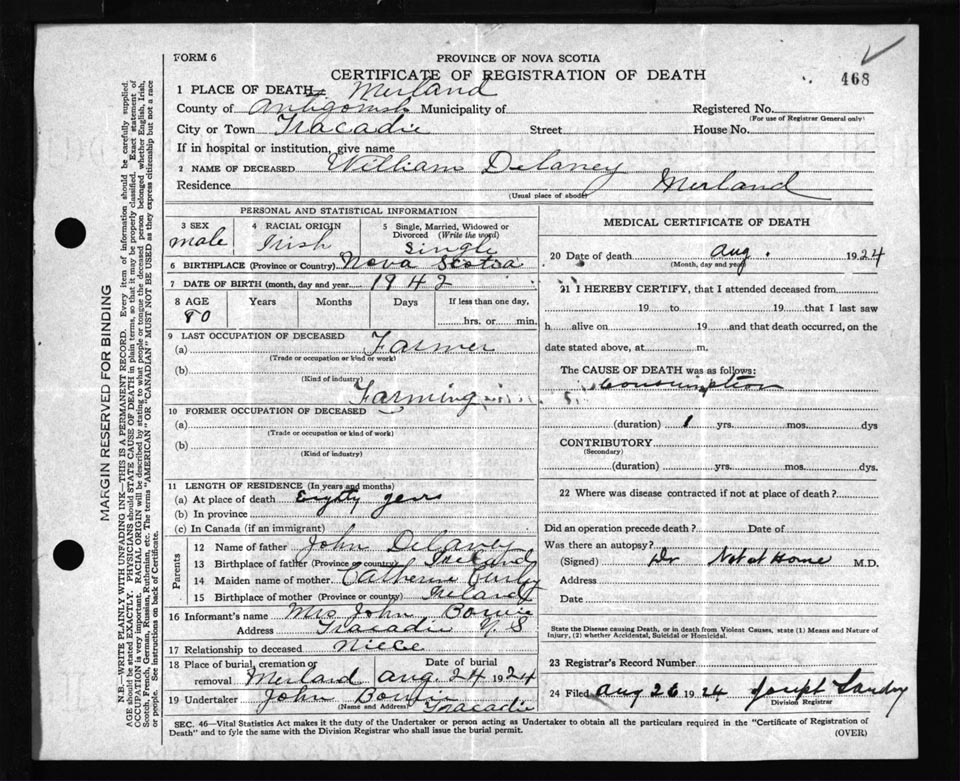 FORM 6
PROVINCE OF NOVA SCOTIA
CERTIFICATE OF REGISTRATION OF DEATH
468
1 PLACE OF DEATH Merland
County of Antigonish Municipality of Registered No.
(For use of Registrar General only)
City or Town Tracadie Street House No.
If in hospital or institution, give name
2 NAME OF DECEASED William Delaney
Residence Merland
(Usual place of abode)
PERSONAL AND STATISTICAL INFORMATION
3 SEX
male
4 RACIAL ORIGIN
Irish
5 Single, Married, Widowed or
Divorced (Write the word)
Single
6 BIRTHPLACE (Province or Country) Nova Scotia
7 DATE OF BIRTH (month, day and year) 1942
8 AGE Years Months Days If less than one day,
80 hrs. or min.
9 LAST OCCUPATION OF DECEASED
(a) Farmer
(Trade or occupation or kind of work)
(b)
(Kind of industry)
Farming
10 FORMER OCCUPATION OF DECEASED
(a)
(Trade or occupation or kind of work)
(b)
(Kind of industry)
11 LENGTH OF RESIDENCE (In years and months)
(a) At place of death Eighty years
(b) In province
(c) In Canada (if an immigrant)
Parents
12 Name of father John Delaney
13 Birthplace of father (Province or country) Ireland
14 Maiden name of mother Catherine
15 Birthplace of mother (Province or country) Ireland
16 Informant's name Mrs John Bowie
Address Tracadie N. S
17 Relationship to deceased Niece
18 Place of burial, cremation or Date of burial
removal Merland aug. 24 1924
19 Undertaker John Bowie
(Name and Address) Tracadie
MEDICAL CERTIFICATE OF DEATH
20 Date of death aug. 1924
(Month, day and year)
21 I HEREBY CERTIFY, that I attended deceased from
19 to 19 that I last saw
h alive on 19 and that death occurred, on the
date stated above, at m.
The CAUSE OF DEATH was as follows:
Consumption
(duration) 1 yrs. mos. dys
CONTRIBUTORY
(Secondary)
(duration) yrs. mos. dys.
22 Where was disease contracted if not at place of death?
Did an operation precede death? Date of
Was there an autopsy?
(Signed) Dr Not at Home M.D.
Address
Date
State the Disease causing Death, or in death from Violent Causes, state (1) Means and Nature of
Injury, (2) whether Accidental, Suicidal or Homicidal.
23 Registrar's Record Number
24 Filed aug 26 1924 Joseph
Division Registrar
SEC. 46—Vital Statistics Act makes it the duty of the Undertaker or person acting as Undertaker to obtain all the particulars required in the "Certificate of Registration of
Death" and to fyle the same with the Division Registrar who shall issue the burial permit.
(OVER)
MARGIN RESERVED FOR BINDING
N.B.—WRITE PLAINLY WITH UNFADING INK—THIS IS A PERMANENT RECORD. Every item of information should be carefully supplied.
AGE should be stated EXACTLY. PHYSICIANS should STATE CAUSE OF DEATH in plain terms, so that it may be properly classified. Exact statement of
OCCUPATION is very important. RACIAL ORIGIN will be described by stating to what people or tongue the deceased person belonged whether English, Irish,
Scotch, French, German, Russian, Ruthenian, etc. The terms "AMERICAN" OR "CANADIAN" MUST NOT BE USED as they express citizenship but not a race
or people. See instructions on back of Certificate.